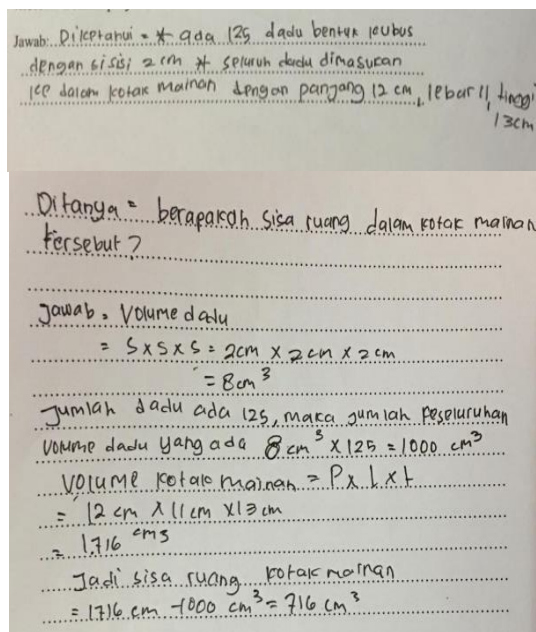 Jawab: Diketahui = * ada 125 dadu bentuk kubus
dengan sisisi 2 cm * seluruh dadu dimasukan
ke dalam kotak mainan dengan panjang 12 cm, lebar 11, tinggi
13cm
Ditanya = berapakah sisa ruang dalam kotak mainan
tersebut?
Jawab = Volume dadu
= S x S x S = 2cm x 2cm x 2cm
= 8cm³
Jumlah dadu ada 125, maka jumlah keseluruhan
volume dadu yang ada 8 cm³ x 125 = 1000 cm³
Volume kotak mainan = P x l x t
= 12 cm x 11 cm x 13 cm
= 1.716 cm3
Jadi sisa ruang kotak mainan
= 1716 cm - 1000 cm³ = 716 cm³